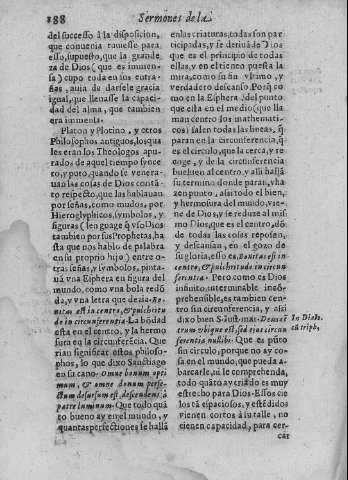 188 Sermones de la
del successo à la disposicion,
que conuenia tuuesse para
esso, supuesto, que la grande
za de Dios (que es inmen-
sa) cupo toda en sus entra-
ñas, auia de darsele gracia
igual, que lleuasse la capaci-
dad del alma, que tambien
era inmensa.
Platon y Plotino, y otros
Philosophos antiguos, los qua
les eran los Theologos apu-
rados de aquel tiempo synce
ro, y puro, quando se venera-
uan las cosas de Dios contā-
to respecto, que las hablauan
por señas, como mudos, por
Hieroglyphicos, symbolos, y
figuras (lenguage q̃ vso Dios
tambien por sus Prophetas, ha
sta que nos hablo de palabra
en su proprio hijo) entre o-
tras señas, y symbolos, pinta-
uā vna Esphera en figura del
mundo, como vna bola redō
da, y vna letra que dezia: Bo-
nitas est in centro, & pulchritu
do in circunferentia. La bōdad
esta en el centro, y la hermo
sura en la circunferēcia. Que
rian significar estos philoso-
phos, lo que dixo Sanctiago
en su cano. Omne donum opti
mum, & omne donum perfe-
ctum desursum est, descendens à
patre luminum. Que todo quā
to bueno ay en el mundo, y
quantas perfectiones se hallā
en las criaturas, todas son par
ticipadas, y se deriuā de Dios
que es el principio de todas
ellas, y en el tienen puesta la
mira, como su fin vltimo, y
verdadero descanso. Porq̃ co
mo en la Esphera, del punto
que esta en el medio (que lla
man centro los mathemati-
cos) salen todas las lineas, q̃
paran en la circunferencia, q̃
es el circulo, que la cerca, y re
coge, y de la circunferencia
bueluen al centro, y alli hallā
su termino donde parar, y ha
zen punto, asi todo el bien,
y hermosura del mundo, vie-
ne de Dios, y se reduze al mis
mo Dios, que es el centro, dō
de todas las cosas reposan,
y descansan, en el gozo de
su gloria, esso es, Bonitas est in
centro, & pulchritudo in circun
ferentia. Pero como es Dios
infinito, interminable, incō-
prehensible, es tambien cen-
tro su circunferencia, y assi
dixo bien S. Iust.mar. Deus cē
trum vbique est, sed eius circun
ferentia nullibi. Que es pūto
su circulo, porque no ay co-
sa en el mundo, que pueda a-
barcarle, ni le comprehenda,
todo quāto ay criado es muy
estrecho para Dios. Essos cie
los tā espaciosos, y estēdidos
vienen cortos à su talle, no
tienen capacidad, para cer-
car
In Dialo.
cū triph,